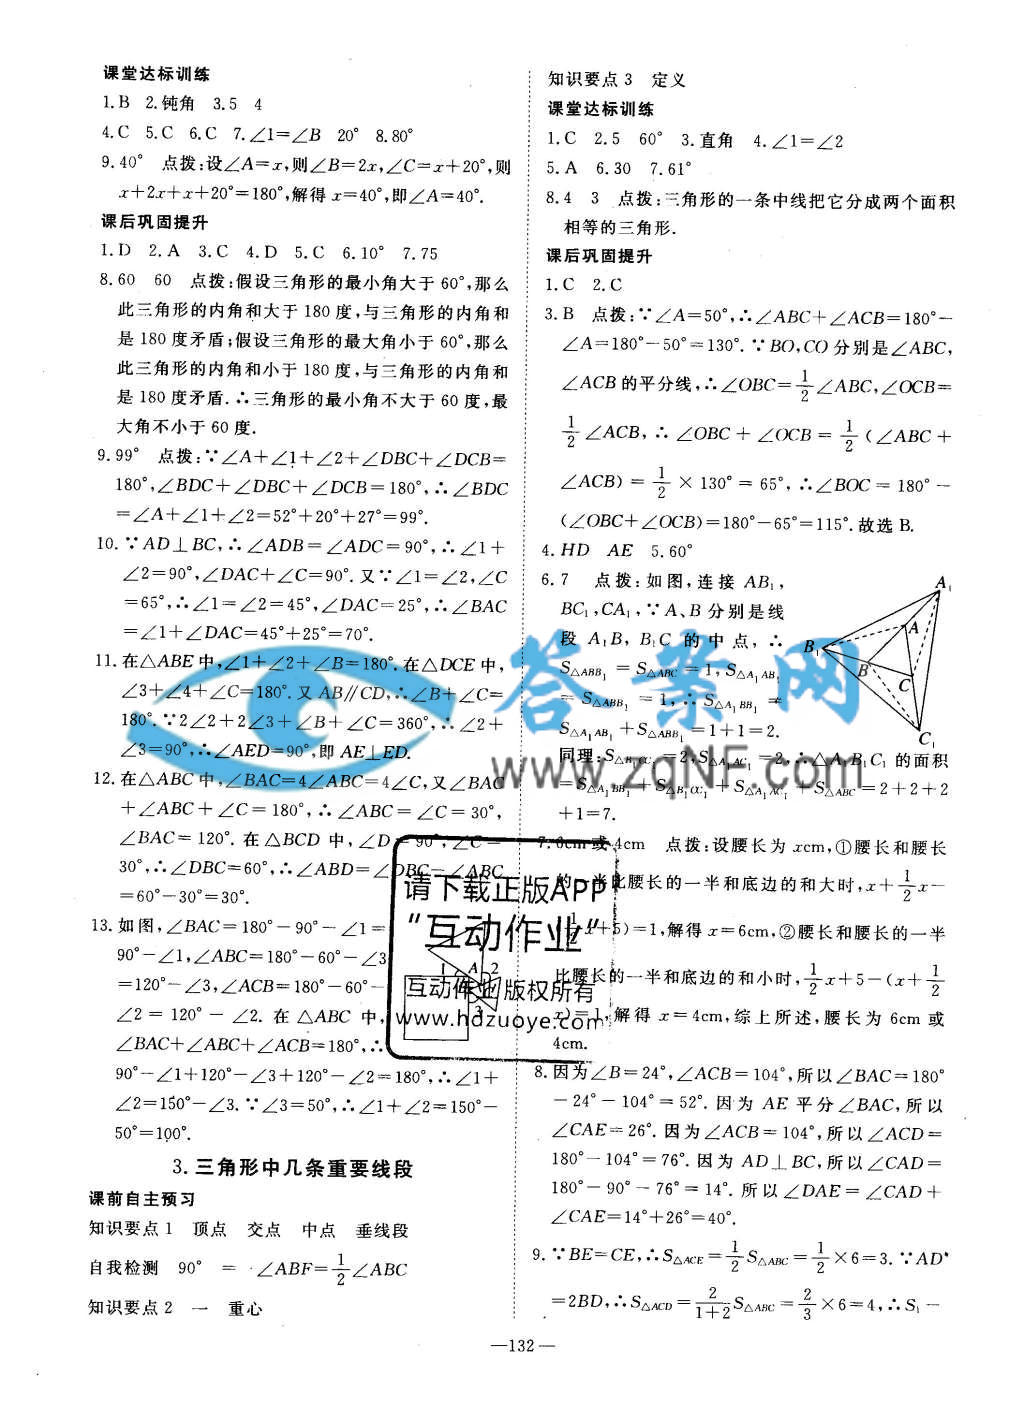 课堂达标训练
1.B 2.钝角 3.5 4
4.C 5.C 6.C 7.∠1=∠B 20° 8.80°
9.40° 点拨:设∠A=x,则∠B=2x,∠C=x+20°,则
x+2x+x+20°=180°,解得 x=40°,即∠A=40°.
课后巩固提升
1.D 2.A 3.C 4.D 5.C 6.10° 7.75
8.60 60 点拨:假设三角形的最小角大于 60°,那么
此三角形的内角和大于 180 度,与三角形的内角和
是 180 度矛盾;假设三角形的最大角小于 60°,那么
此三角形的内角和小于 180 度,与三角形的内角和
是 180 度矛盾.∴三角形的最小角不大于 60 度,最
大角不小于 60 度.
9.99° 点拨:∵∠A+∠1+∠2+∠DBC+∠DCB=
180°,∠BDC+∠DBC+∠DCB=180°,∴∠BDC
=∠A+∠1+∠2=52°+20°+27°=99°.
10.∵AD⊥BC,∴∠ADB=∠ADC=90°,∴∠1+
∠2=90°,∠DAC+∠C=90°.又∵∠1=∠2,∠C
=65°,∴∠1=∠2=45°,∠DAC=25°,∴∠BAC
=∠1+∠DAC=45°+25°=70°.
11.在△ABE 中,∠1+∠2+∠B=180°.在△DCE 中,
∠3+∠4+∠C=180°.又 AB∥CD,∴∠B+∠C=
180°.∵2∠2+2∠3+∠B+∠C=360°,∴∠2+
∠3=90°,∴∠AED=90°,即 AE⊥ED.
12.在△ABC 中,∠BAC=4∠ABC=4∠C,又∠BAC
+∠ABC+∠C=180°,∴∠ABC=∠C=30°,
∠BAC=120°.在△BCD 中,∠D=90°,∠C=
30°,∴∠DBC=60°,∴∠ABD=∠DBC-∠ABC
=60°-30°=30°.
13.如图,∠BAC=180°-90°-∠1=
90°-∠1,∠ABC=180°-60°-∠3
=120°-∠3,∠ACB=180°-60°-
∠2=120°-∠2.在△ABC 中,
∠BAC+∠ABC+∠ACB=180°,∴
90°-∠1+120°-∠3+120°-∠2=180°,∴∠1+
∠2=150°-∠3.∵∠3=50°,∴∠1+∠2=150°-
50°=100°.
1 A 2
3
3.三角形中几条重要线段
课前自主预习
知识要点 1 顶点 交点 中点 垂线段
自我检测 90° = ∠ABF=1/2∠ABC
知识要点 2 一 重心
知识要点 3 定义
课堂达标训练
1.C 2.5 60° 3.直角 4.∠1=∠2
5.A 6.30 7.61°
8.4 3 点拨:三角形的一条中线把它分成两个面积
相等的三角形.
课后巩固提升
1.C 2.C
3.B 点拨:∵∠A=50°,∴∠ABC+∠ACB=180°-
∠A=180°-50°=130°.∵BO,CO 分别是∠ABC,
∠ACB 的平分线,∴∠OBC=1/2∠ABC,∠OCB=
1/2∠ACB,∴∠OBC+∠OCB=1/2(∠ABC+
∠ACB)=1/2×130°=65°,∴∠BOC=180°-
(∠OBC+∠OCB)=180°-65°=115°.故选 B.
4.HD AE 5.60°
6.7 点拨:如图,连接 AB₁,
BC₁,CA₁,∵A、B 分别是线
段 A₁B,B₁C 的中点,∴
S△ABB₁=S△ABC=1,S△A₁AB₁
=S△ABB₁=1,∴S△A₁BB₁=
S△A₁AB₁+S△ABB₁=1+1=2.
A₁
B₁
A
B
C
C₁
同理:S△B₁CC₁=2,S△A₁AC₁=2,∴△A₁B₁C₁ 的面积
=S△A₁BB₁+S△B₁CC₁+S△A₁AC₁+S△ABC=2+2+2
+1=7.
7.6cm 或 4cm 点拨:设腰长为 xcm,①腰长和腰长
的一半比腰长的一半和底边的和大时,x+1/2x-
(1/2x+5)=1,解得 x=6cm,②腰长和腰长的一半
比腰长的一半和底边的和小时,1/2x+5-(x+1/2
x)=1,解得 x=4cm,综上所述,腰长为 6cm 或
4cm.
8.因为∠B=24°,∠ACB=104°,所以∠BAC=180°
-24°-104°=52°.因为 AE 平分∠BAC,所以
∠CAE=26°.因为∠ACB=104°,所以∠ACD=
180°-104°=76°.因为 AD⊥BC,所以∠CAD=
180°-90°-76°=14°.所以∠DAE=∠CAD+
∠CAE=14°+26°=40°.
9.∵BE=CE,∴S△ACE=1/2S△ABC=1/2×6=3.∵AD
=2BD,∴S△ACD=2/(1+2)S△ABC=2/3×6=4,∴S₁-
—132—
答案网
www.zqNF.com
请下载正版APP
“互动作业”
互动作业版权所有
www.hdzuoye.com